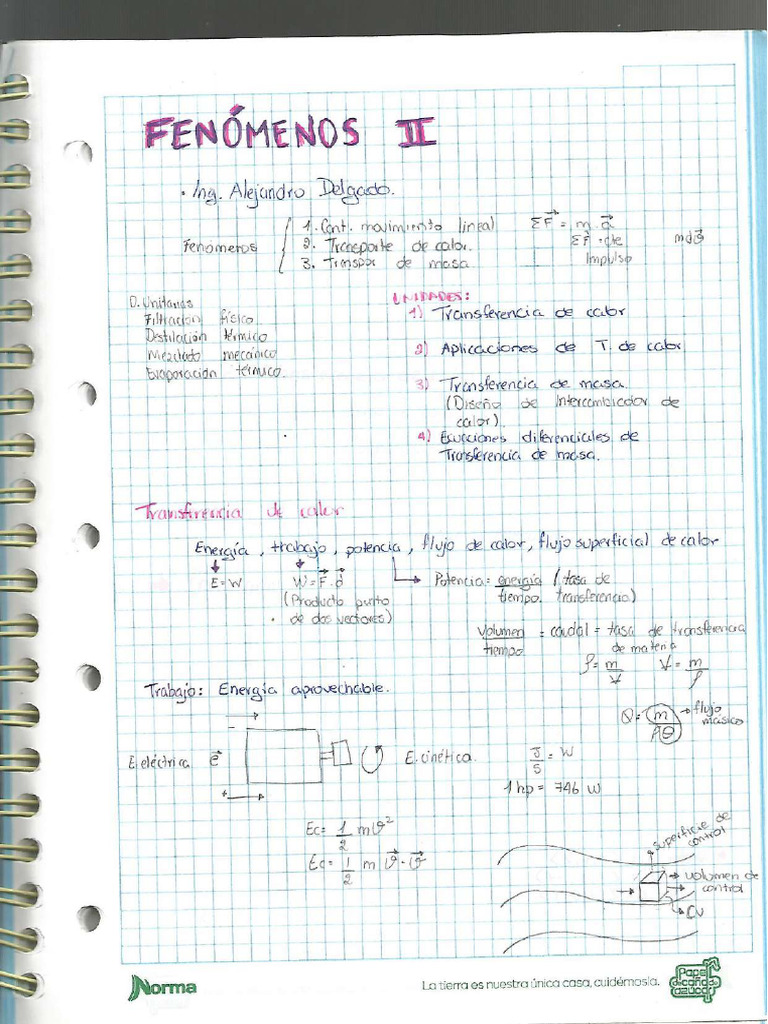 FENÓMENOS II
· Ing. Alejandro Delgado.
Fenómenos
1. Cant. movimiento lineal
2. Transporte de calor.
3. Transpor de masa
ΣF⃗ = m.a⃗
ΣF⃗ = cte
Impulso
mdϑ⃗
O. Unitarias
Filtración físico
Destilación térmico
Mezclado mecánico
Evaporación térmico.
UNIDADES:
1) Transferencia de calor
2) Aplicaciones de T. de calor
3) Transferencia de masa.
(Diseño de Intercambiador de
calor).
4) Ecuaciones diferenciales de
Transferencia de masa.
Transferencia de calor
Energía, trabajo, potencia, flujo de calor, flujo superficial de calor
E = W
W = F⃗ . d⃗
(Producto punto
de dos vectores)
Potencia: energía / tiempo (tasa de
transferencia)
Volumen / tiempo = caudal = tasa de transferencia
de materia
ρ = m / V
V = m / ρ
Trabajo: Energía aprovechable.
Q = m / ρθ → flujo
másico
E. eléctrica e⃗
-
+
E. cinética.
J / s = W
1 hp = 746 W
Ec = 1/2 mϑ²
Ec = 1/2 m ϑ⃗ · ϑ⃗
superficie de
control
volumen de
control
CV
Norma
La tierra es nuestra única casa, cuidémosla.
Papel
de caña de
azúcar